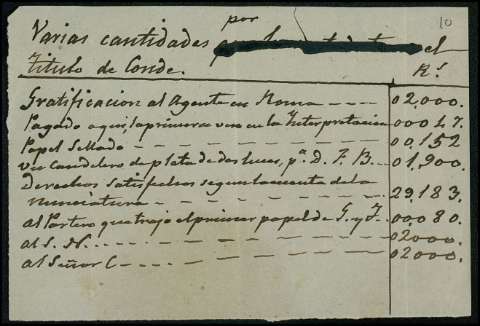 10
Varias cantidades por el
Titulo de Conde.
Rs.
Gratificacion al Agente en Roma --- 02,000.
Pagado aqui, la primera vez en la Interpretacion 00027.
Papel Sellado --- 00,152
un candelero de plata de dos luces, pa. D. F. B... 01,900.
Derechos satisfechos segun la cuenta de la
Nunciatura --- 29,183.
al Portero que trajo el primer papel de G. y J. 00,080.
al S. N. --- 02000.
al Señor C --- 02000.